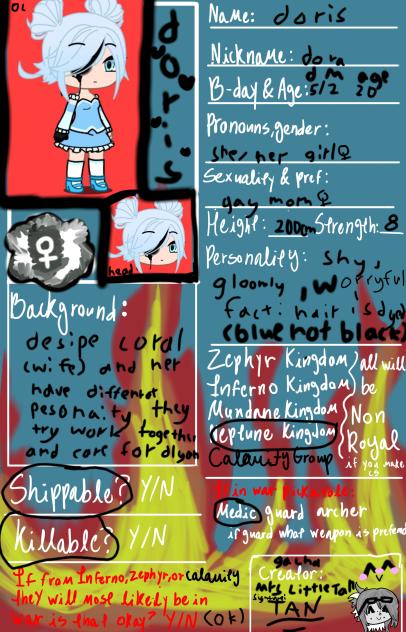 OC
doris
head
Name: doris
Nickname: dora
d m age
B-day & Age: 5/2 20
Pronouns, gender:
she/her girl♀
Sexuality & pref:
gay mom♀
Height: 200cm Strength: 8
Personality: shy,
gloomly, worryful
fact: hair is dyed
(blue not black)
Background:
desipe coral
(wife) and her
have different
pesonaity they
try work together
and care for dlyan
Zephyr Kingdom
Inferno Kingdom
Mundane Kingdom
Neptune Kingdom
Calamity Group
all will
be
Non
Royal
if you make
cs
Shippable? Y/N
Killable? Y/N
If in war pick a role:
Medic guard archer
if guard what weapon is prefend
If from Inferno, Zephyr, or calamity
they will most likely be in
war is that okay? Y/N (OK)
gacha
Creator:
Mrs LittleTan
TAN